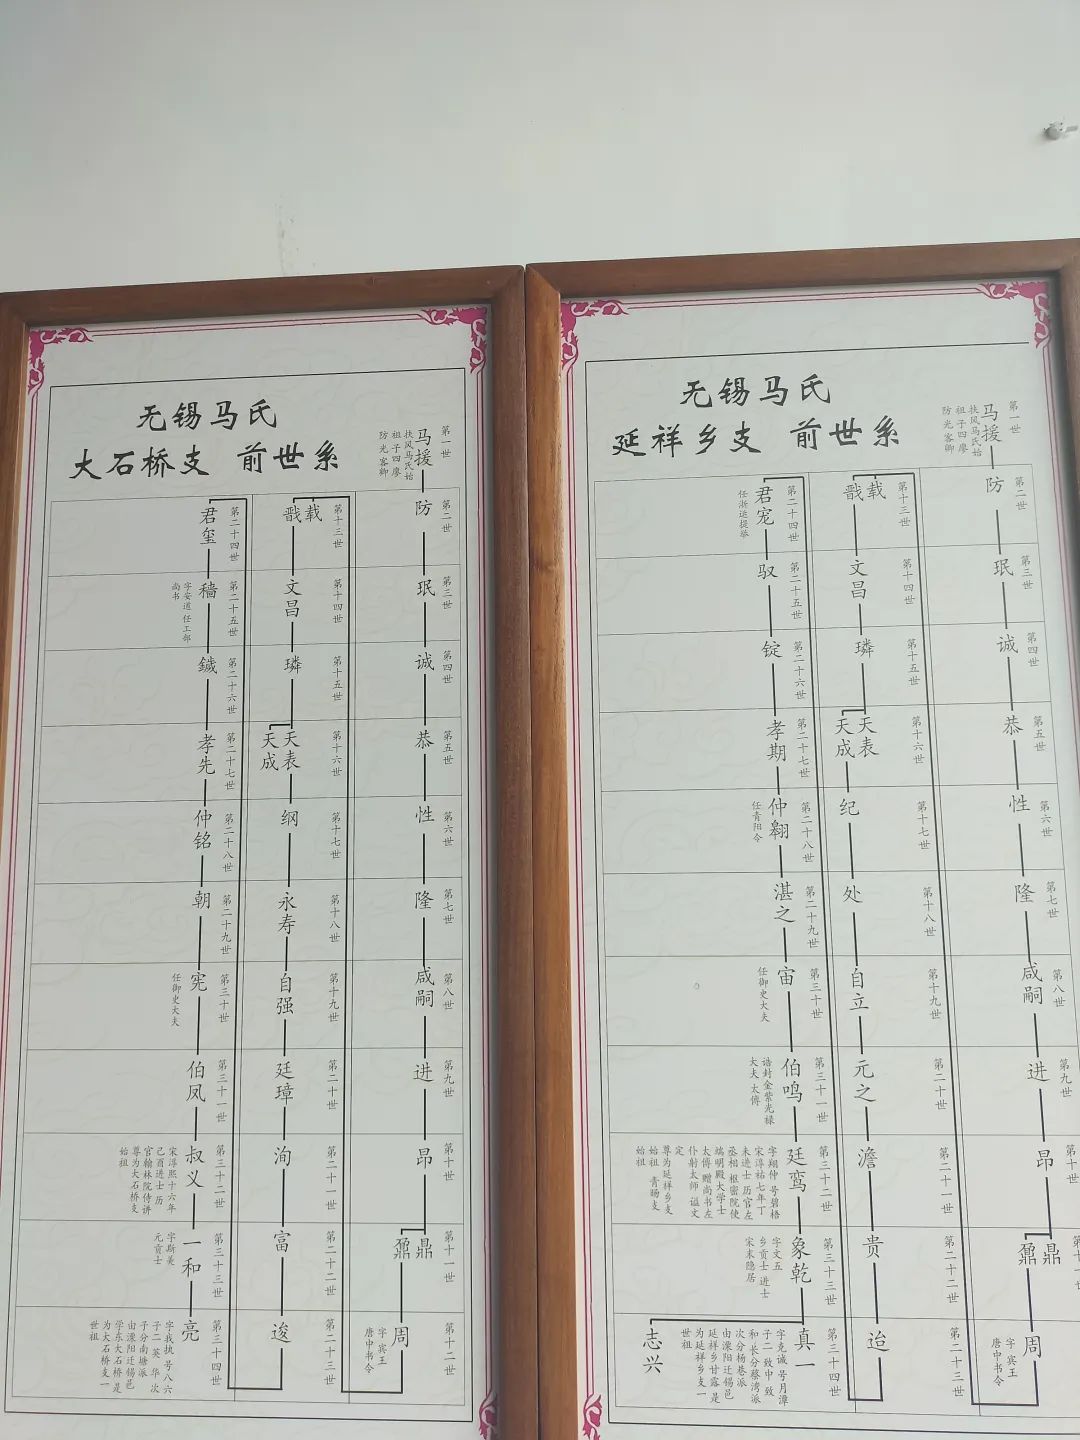 无锡马氏
大石桥支 前世系
第一世
马援
扶风马氏始
祖子四廖
防光客卿
第二世
防
第三世
珉
第四世
诚
第五世
恭
第六世
性
第七世
隆
第八世
咸嗣
第九世
进
第十世
昂
第十一世
鼎
鼐
第十二世
周
字宾王
唐中书令
第十三世
载
戬
第十四世
文昌
第十五世
璘
第十六世
天表
天成
第十七世
纲
第十八世
永寿
第十九世
自强
第二十世
廷璋
第二十一世
洵
第二十二世
富
第二十三世
逡
第二十四世
君玺
第二十五世
穑
字安道 任工部
尚书
第二十六世
鏚
第二十七世
孝先
第二十八世
仲铭
第二十九世
朝
第三十世
宪
任御史大夫
第三十一世
伯凤
第三十二世
叔义
宋淳熙十六年
己酉进士 历
官翰林院侍讲
尊为大石桥支
始祖
第三十三世
一和
字斯美
元贡士
第三十四世
亮
字我执 号八六
子二 英 华 次
子分南塘派
由溧阳迁锡邑
学东大石桥 是
为大石桥支一
世祖
无锡马氏
延祥乡支 前世系
第一世
马援
扶风马氏始
祖子四廖
防光客卿
第二世
防
第三世
珉
第四世
诚
第五世
恭
第六世
性
第七世
隆
第八世
咸嗣
第九世
进
第十世
昂
第十一世
鼎
鼐
周
字宾王
唐中书令
第十三世
载
戬
第十四世
文昌
第十五世
璘
第十六世
天表
天成
第十七世
纪
第十八世
处
第十九世
自立
第二十世
元之
第二十一世
澹
第二十二世
贵
第二十三世
迨
第二十四世
君宠
任浙运提举
第二十五世
驭
第二十六世
锭
第二十七世
孝期
第二十八世
仲翱
任青阳令
第二十九世
湛之
第三十世
宙
任御史大夫
第三十一世
伯鸣
诰封金紫光禄
大夫 太傅
第三十二世
廷鸾
字翔仲 号碧梧
宋淳祐七年丁
未进士 历官左
丞相 枢密院使
端明殿大学士
太傅 赠尚书左
仆射太师 谥文
定
尊为延祥乡支
始祖 青旸支
始祖
第三十三世
象乾
字文五
乡贡士 进士
宋末隐居
第三十四世
真一
字克诚 号月潭
子二 致中 致
和 长分蔡湾派
次分杨巷派
由溧阳迁锡邑
延祥乡甘露 是
为延祥乡支一
世祖
志兴